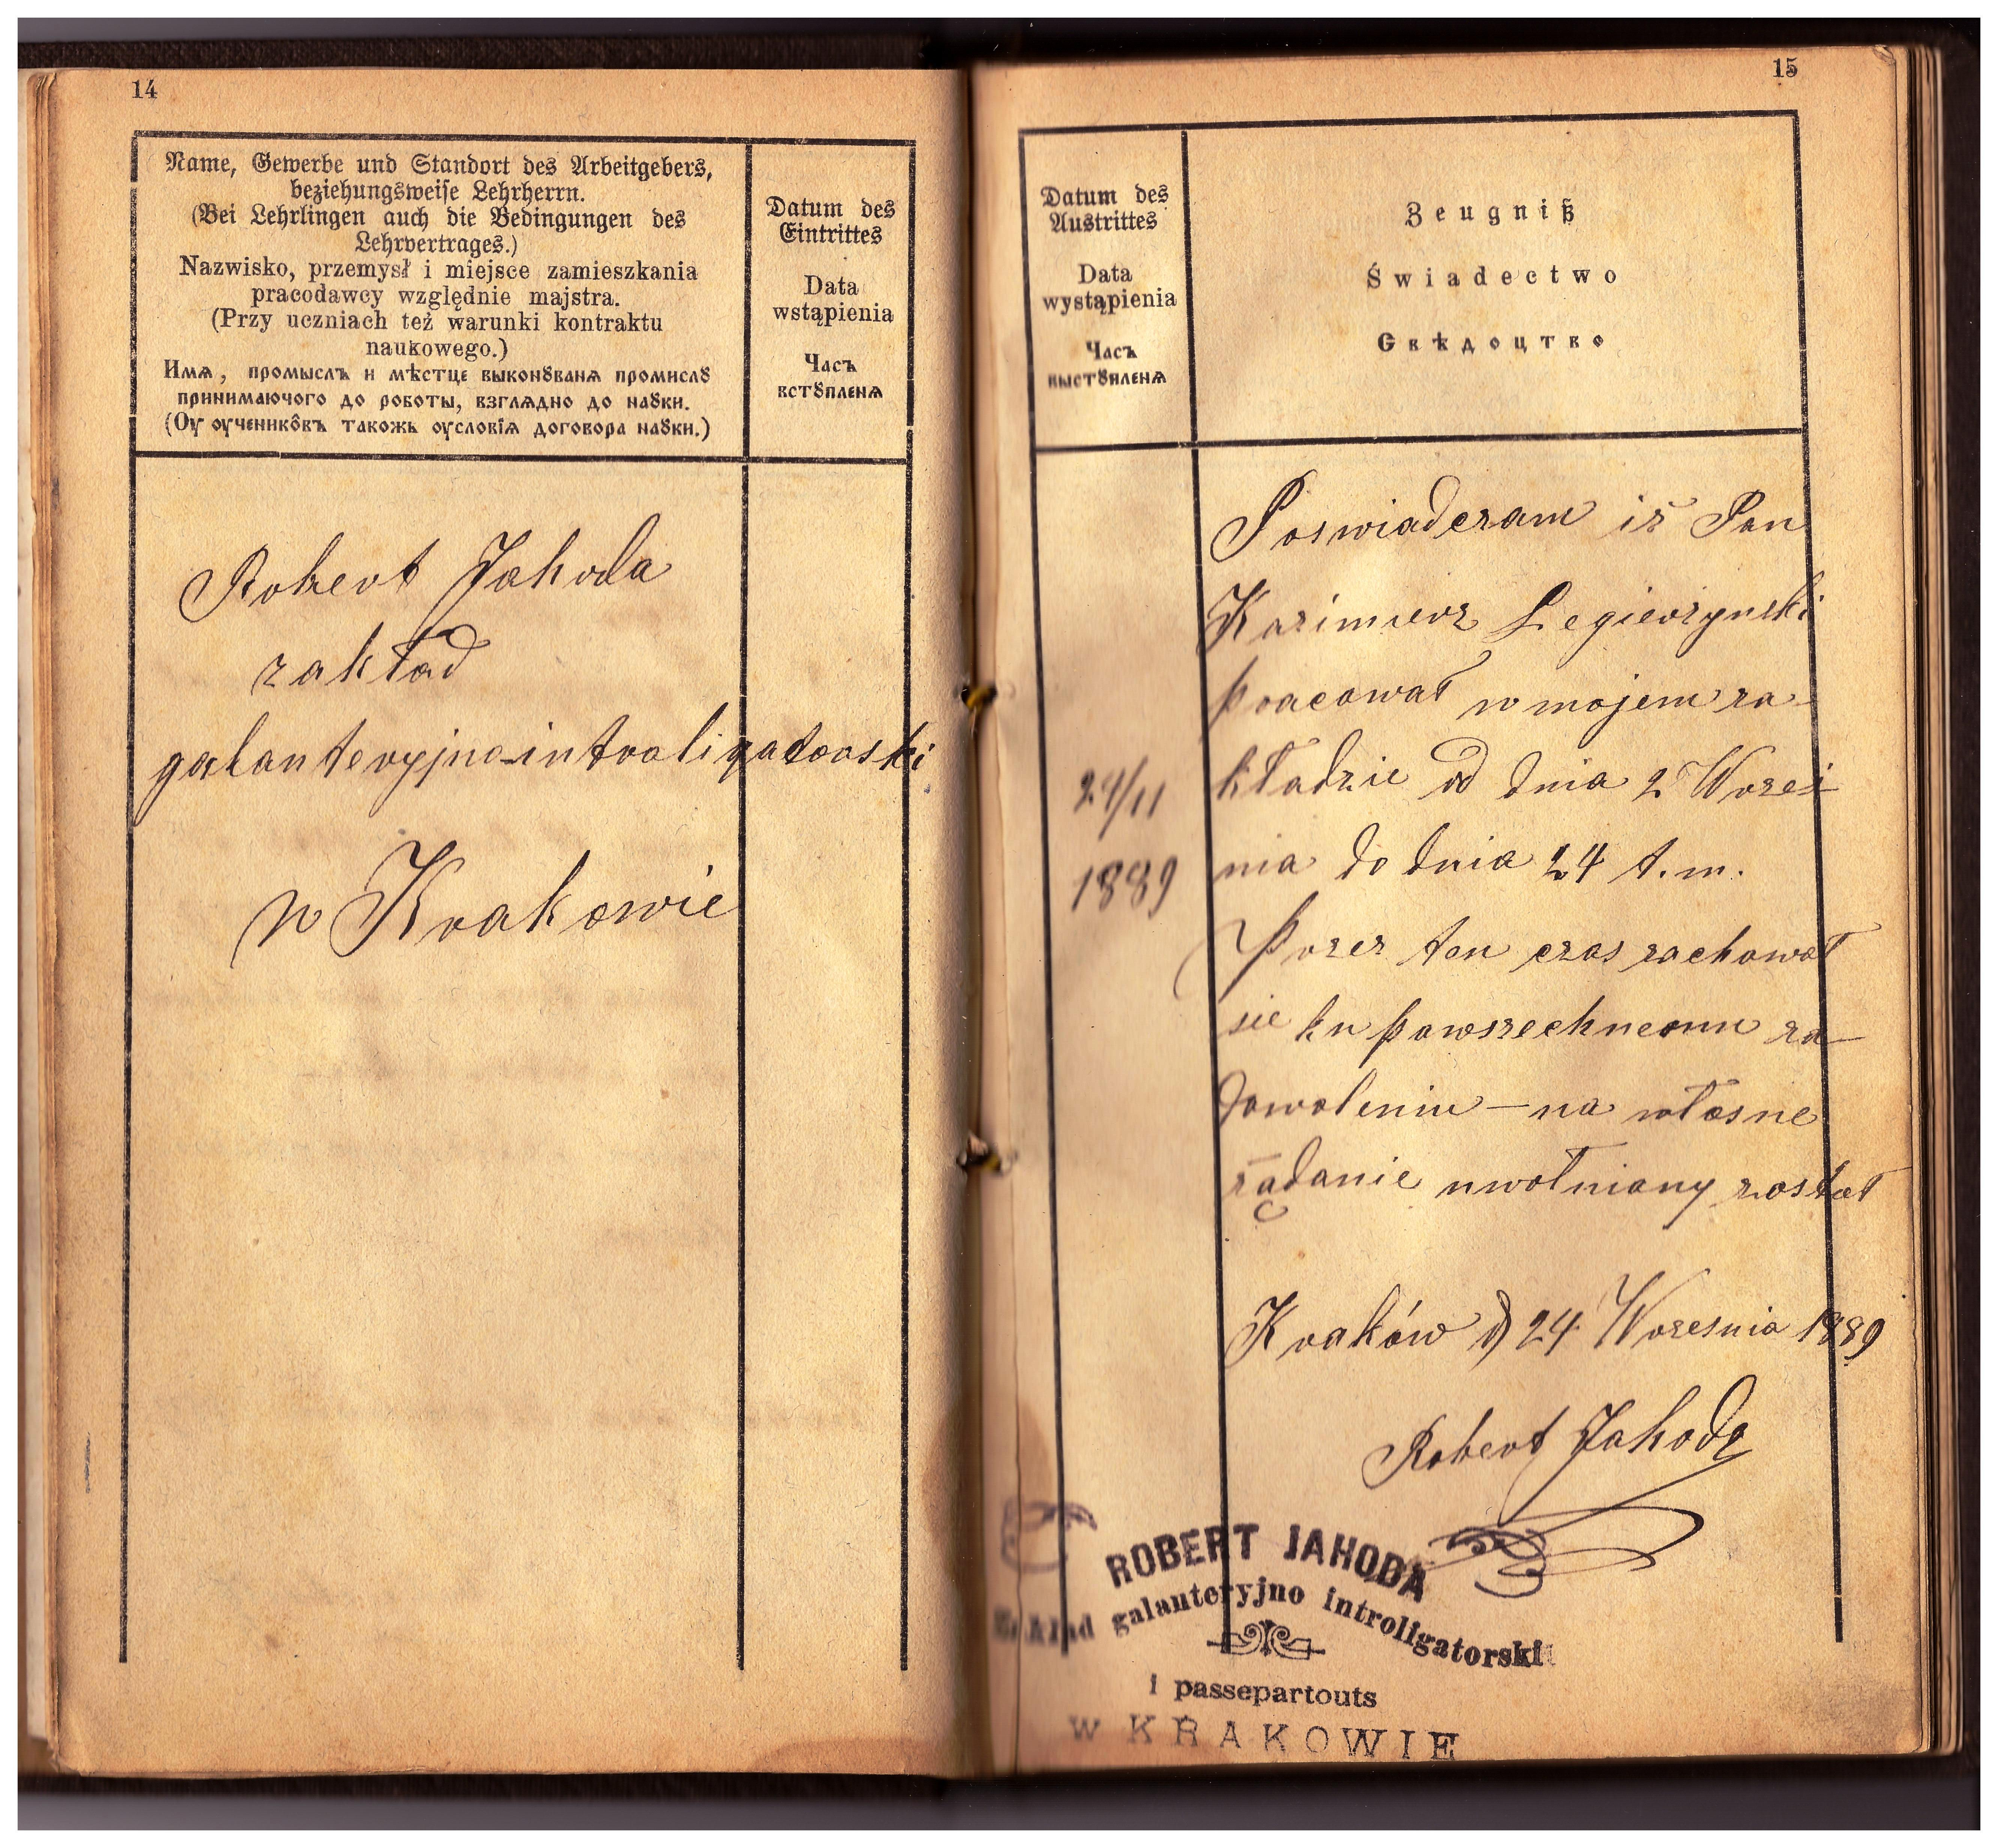 14
Name, Gewerbe und Standort des Arbeitgebers,
beziehungsweise Lehrherrn.
(Bei Lehrlingen auch die Bedingungen des
Lehrvertrages.)
Nazwisko, przemysł i miejsce zamieszkania
pracodawcy względnie majstra.
(Przy uczniach też warunki kontraktu
naukowego.)
Имѧ, промыслъ и мѣстце выконꙋванѧ промислꙋ
принимаючого до роботы, взглѧдно до наꙋки.
(Оу оученикôвъ такожь оусловїѧ договора наꙋки.)
Datum des
Eintrittes
Data
wstąpienia
Часъ
встꙋпленѧ
Robert Jahoda
zakład
galanteryjno-introligatorski
w Krakowie
15
Datum des
Austrittes
Data
wystąpienia
Часъ
выстꙋпленѧ
Zeugniß
Świadectwo
Свѣдоцтво
24/11
1889
Poswiadczam iż Pan
Kazimierz Legierzynski
pracował w mojem za-
kładzie od dnia 2 Wrześ-
nia do dnia 24 t.m.
Przez ten czas zachował
sie ku powszechnemu za-
dowoleniu — na własne
żądanie uwolniony został
Kraków d 24 Wrzesnia 1889
Robert Jahoda
ROBERT JAHODA
Zakład galanteryjno introligatorski
i passepartouts
W KRAKOWIE